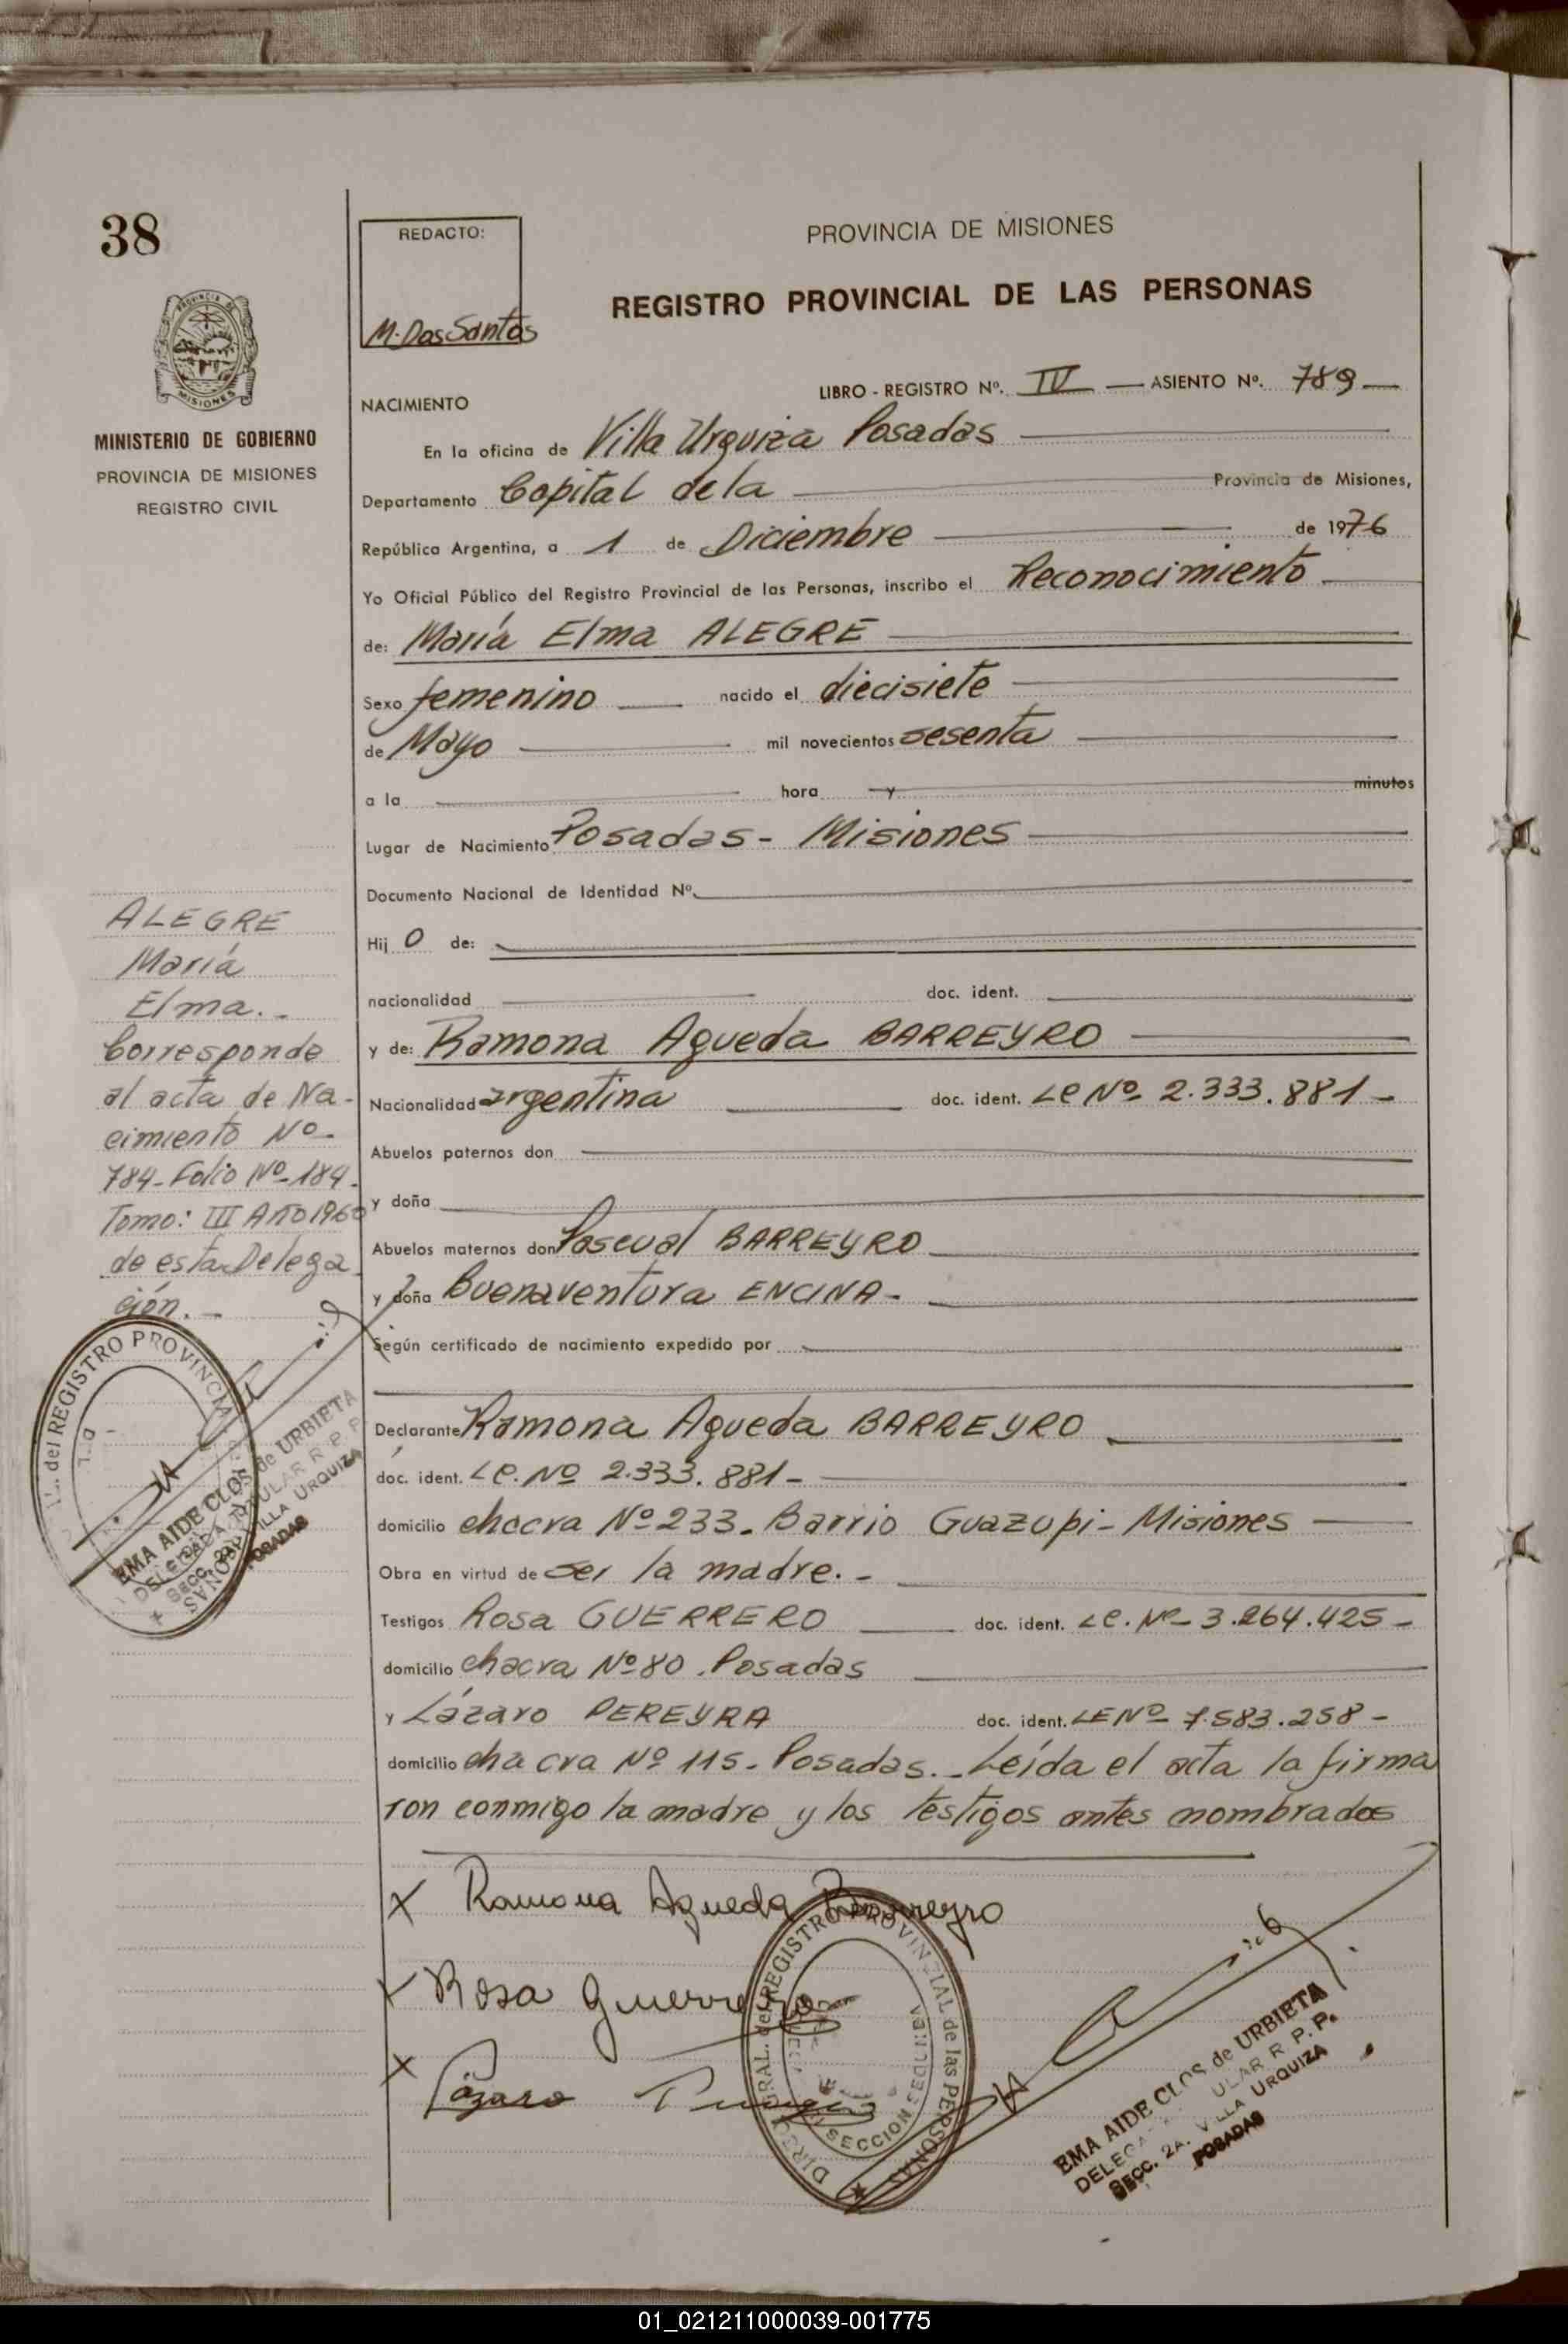 38
REDACTO:
M. Dos Santos
PROVINCIA DE MISIONES
REGISTRO PROVINCIAL DE LAS PERSONAS
PROVINCIA DE
MISIONES
MINISTERIO DE GOBIERNO
PROVINCIA DE MISIONES
REGISTRO CIVIL
LIBRO - REGISTRO Nº. IV ASIENTO Nº. 789
NACIMIENTO
En la oficina de Villa Urquiza Posadas
Departamento Capital de la Provincia de Misiones,
República Argentina, a 1 de Diciembre de 1976
Yo Oficial Público del Registro Provincial de las Personas, inscribo el Reconocimiento
de: María Elma ALEGRE
Sexo femenino nacido el diecisiete
de Mayo mil novecientos sesenta
a la hora y minutos
Lugar de Nacimiento Posadas - Misiones
Documento Nacional de Identidad Nº
Hijo de:
nacionalidad doc. ident.
y de: Ramona Agueda BARREYRO
Nacionalidad argentina doc. ident. LC Nº 2.333.881-
Abuelos paternos don
y doña
Abuelos maternos don Pascual BARREYRO
y doña Buenaventura ENCINA-
Según certificado de nacimiento expedido por
Declarante Ramona Agueda BARREYRO
doc. ident. LC. Nº 2.333.881-
domicilio chacra Nº 233. Barrio Guazupi - Misiones
Obra en virtud de ser la madre.-
Testigos Rosa GUERRERO doc. ident. LC. Nº 3.264.425-
domicilio chacra Nº 80. Posadas
y Lázaro PEREYRA doc. ident. LE Nº 7.583.258-
domicilio chacra Nº 115- Posadas.- Leída el acta la firma
ron conmigo la madre y los testigos antes nombrados
ALEGRE
María
Elma.-
Corresponde
al acta de Na-
cimiento Nº
784- Folio Nº 184-
Tomo: III Año 1960
de esta Delega
ción.-
REGISTRO PROVINCIAL
EMA AIDE CLOS de URBIETA
DELEGADA TITULAR R P P
SECC. 2A. VILLA URQUIZA
POSADAS
X Ramona Agueda Barreyro
X Rosa Guerrero
X Lázaro
DIREC. GRAL. del REGISTRO PROVINCIAL de las PERSONAS
SECCION SEGUNDA
EMA AIDE CLOS de URBIETA
DELEGADA TITULAR R P. P.
SECC. 2A. VILLA URQUIZA
POSADAS
01_021211000039-001775